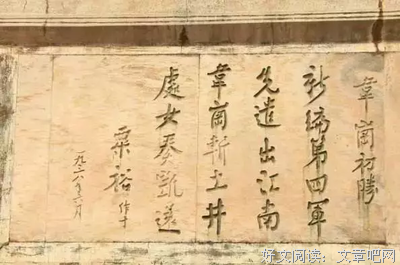 韋崗初勝
新編第四軍
先遣出江南
韋崗斬土井
處女奏凱還
粟裕作
一九三八年六月
好文阅读：文章吧网